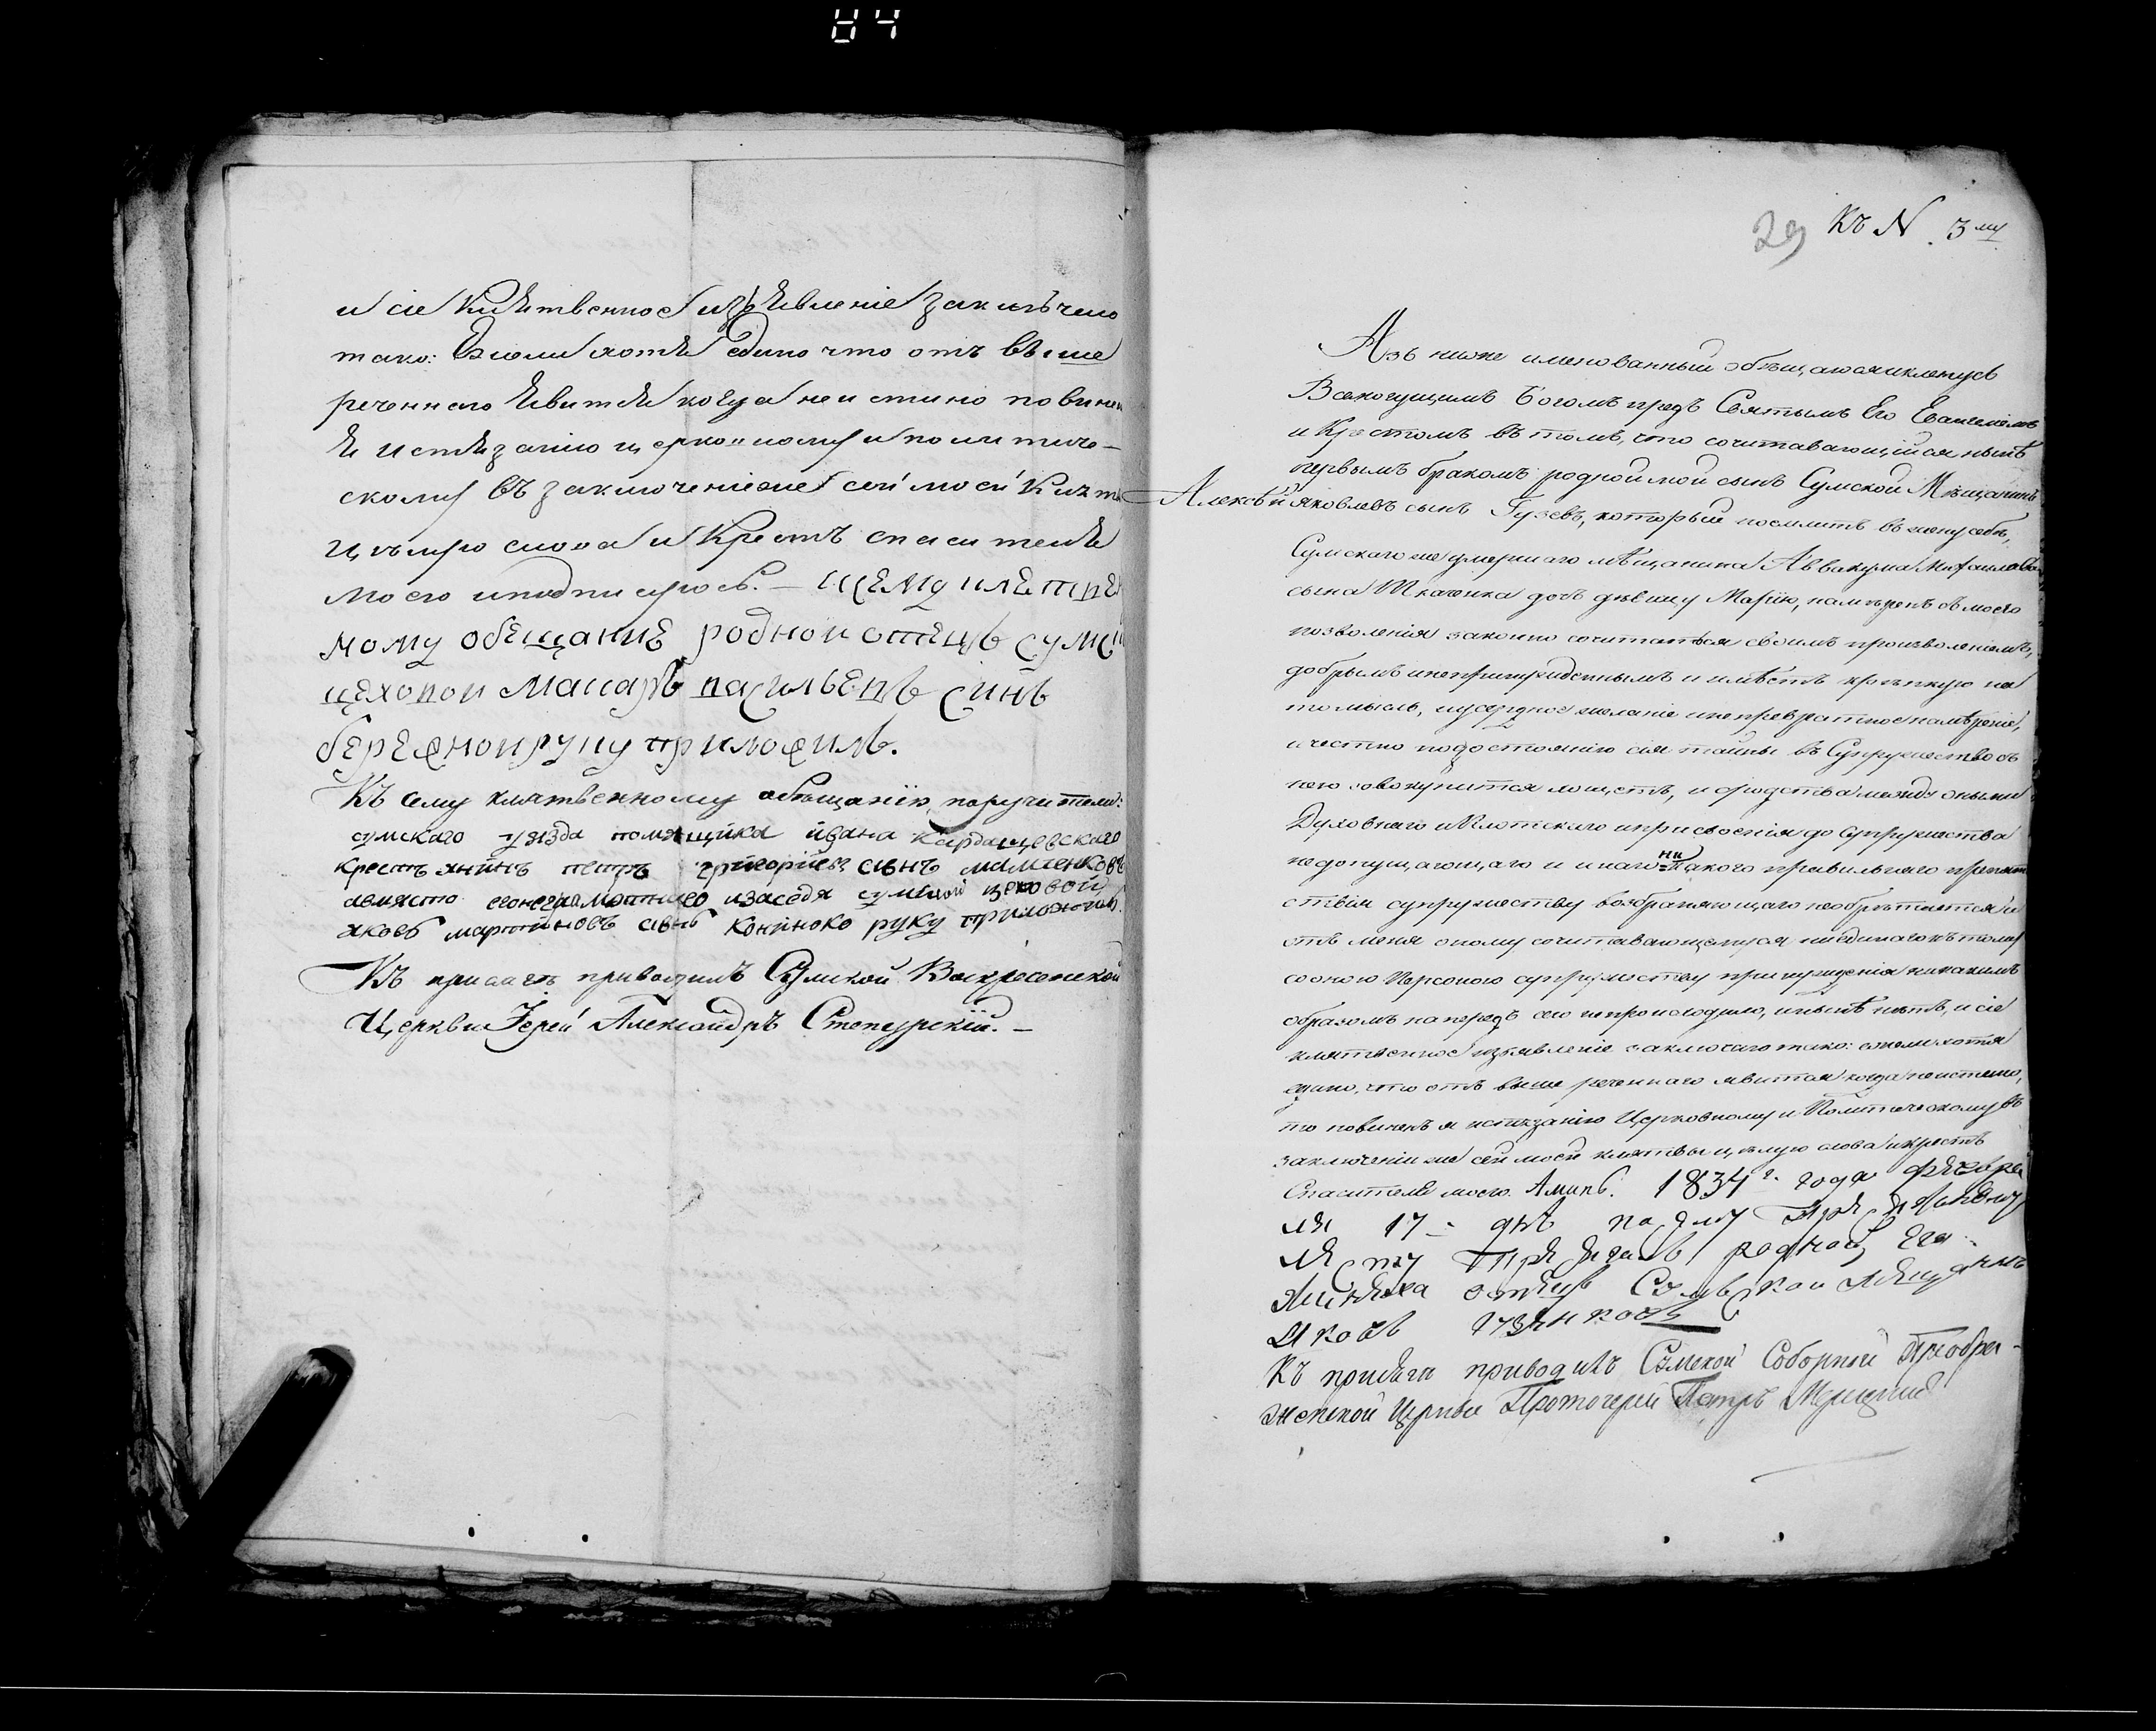 84
и сіе Клятвенное изъявленіе заключаю
тако: Ежели хотя едино что отъ выше
реченнаго явится когда неистино повинен
я истязанію церковному и политиче-
скому въ заключеніе же сей моей Клят
цѣлую слова и Крестъ спасителя
моего и подписуюсь. —
мому обещание родной отецъ сумс
цеховои Макаръ васильевъ синъ
бережнои руку приложилъ.
Къ сему клятвенному обѣщанію, поручители:
сумскаго уѣзда помящика ивана Кардашевскаго
крестьянинъ петръ григориевъ сынъ
авмясто егонеграмотнаго изасебя сумской цеховой
яковъ мартиновъ сынъ руку приложилъ.
Къ присягѣ приводилъ Сумской Воскресенской
Церкви Іерей Александръ
29 Къ N. 3му
Азъ ниже именованный обѣщаюся и кленусь
Всемогущимъ Богомъ предъ Святымъ Его Евангеліемъ
и Крестомъ въ томъ, что сочитавающійся нынѣ
первымъ бракомъ родной мой сынъ Сумской Мѣщанинъ
Алексѣй Яковлевъ сынъ Гузевъ, который поемлитъ въ жену себѣ,
Сумскаго же умершаго мѣщанина Аввакума Михайлова
сына Ткаченка дочь дѣвицу Марію, намѣренъ съ моего
позволенія законно сочитаться своимъ произволеніемъ,
добрымъ и непринужденнымъ и имѣетъ крѣпкую на
то мысль, и усердное желаніе и непревратное намѣреніе,
и честно по достоянію сія тайны въ Супружество съ
нею совокупится мощетъ, и сродства между оными
Духовнаго и Плотскаго и присвоенія до супружества
недопущающаго и инаго ни такого правильнаго препят
ствія супружеству возбраняющаго необрѣтается и
отъ меня оному сочитавающемуся ни единаго къ тому
со оною Персоною супружеству принужденія никакимъ
образомъ напредъ сего не происходило, и нынѣ нѣтъ, и сіе
клятвенное изъявленіе заключаю тако: ежели хотя
едино, что отъ выше реченнаго явится когда неистино,
то повиненъ я истязанію Церковному и Политическому въ
заключеніи же сей моей клятвы цѣлую слова и крестъ
Спасителя моего. Аминь. 1834 г. года февра
ля 17 - днъ
родной его
отецъ
Яковъ
Къ присяги приводилъ Сумской Соборной Преобра-
женской Церкви Протоіерей Петръ